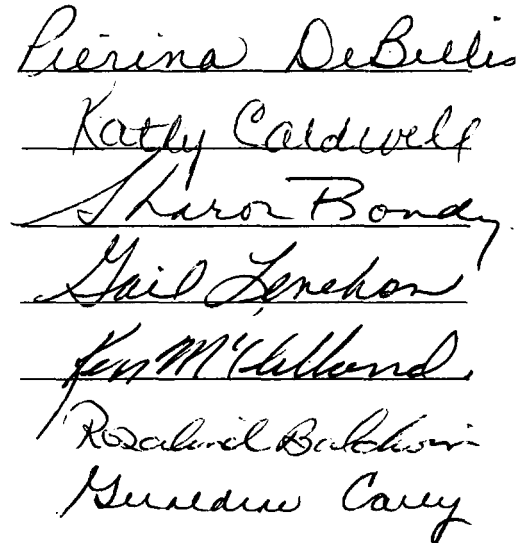 Pierina DeBellis
Kathy Caldwell
Sharon Bondy
Gail Lenehan
Ken McClelland
Rosalind Baldwin
Geraldine Carey